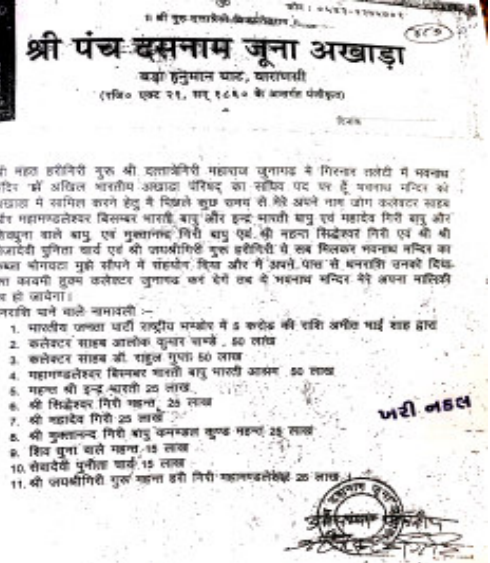 ॥ श्री गुरु दत्तात्रेयो विजयतेतराम् ॥
फोन : ०५४२-
श्री पंच दसनाम जूना अखाड़ा
बड़ा हनुमान घाट, वाराणसी
(रजि० एक्ट २१, सन् १८६० के अन्तर्गत पंजीकृत)
दिनांक
महंत हरीगिरी गुरु श्री दत्तात्रेगिरी महाराज जुनागढ मे गिरनार तलेटी में भवनाथ
में अखिल भारतीय अखाडा परिषद् का सचिव पद पर हूँ भवनाथ मन्दिर को
अखाडा में सामिल करने हेतु मै पिछले कुछ समय से मेरे अपने नाम जोग कलेक्टर साहब
महामण्डलेश्वर बिसम्बर भारती बापु और इन्द्र भारती बापु एवं महादेव गिरी बापु और
बापु एवं मुक्तानन्द गिरी बापु एवं श्री महन्त सिद्धेश्वर गिरी एवं श्री श्री
पुनिता चार्य एवं श्री जयश्रीगिरी गुरु हरीगिरी ये सब मिलकर भवनाथ मन्दिर का
भोगवटा मुझे सौपने में सहयोग दिया और मैं अपने पास से धनराशि उनको दिया
कायमी हुक्म कलेक्टर जुनागढ कर देगें तब ये भवनाथ मन्दिर मेरे अपना मालिकी
हो जायेगा।
पाने वाले नामावली :-
1. भारतीय जनता पार्टी राष्ट्रीय भण्डोर में 5 करोड की राशि अमीत भाई शाह द्वारा
2. कलेक्टर साहब आलोक कुमार पाण्डे , 50 लाख
3. कलेक्टर साहब डॉ. राहुल गुप्ता 50 लाख
4. महामण्डलेश्वर बिसम्बर भारती बापु भारती आश्रम 50 लाख
5. महन्त श्री इन्द्र भारती 25 लाख
6. श्री सिद्धेश्वर गिरी महन्त, 25 लाख
7. श्री महादेव गिरी 25 लाख
8. श्री मुक्तानन्द गिरी बापु कमण्डल कुण्ड महन्त 25 लाख
9. शिव धुना वाले महन्त 15 लाख
10. सेवादेवी पुनीता चार्य 15 लाख
11. श्री जयश्रीगिरी गुरु महन्त हरी गिरी महामण्डलेश्वर 25 लाख
ખરી નકલ